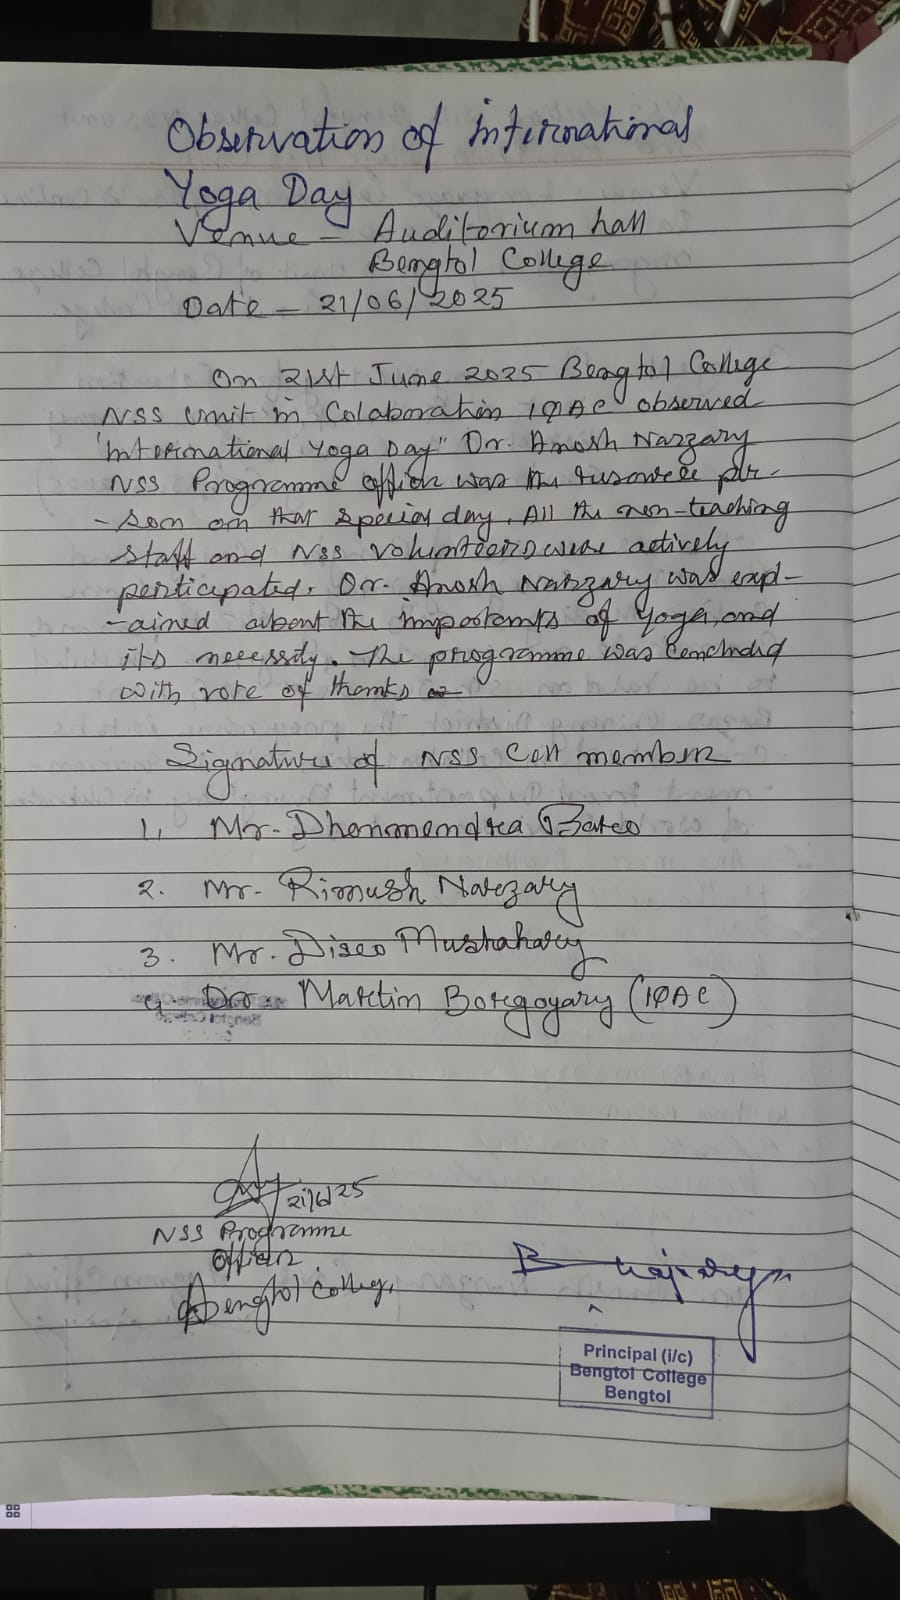 Observation of international
Yoga Day
Venue - Auditorium hall
Bengtol College
Date - 21/06/2025
On 21st June 2025 Bengtol College
NSS Unit in Colaboration IQAC observed
"International Yoga Day" Dr. Anosh Narzary
NSS Programme officer was the per-
-son on that special day. All the non-teaching
staff and NSS volunteers were actively
perticipated. Dr. Anosh Narzary was expl-
-ained about the of Yoga, and
its necessity. The programme was Concluded
with vote of thanks
Signature of NSS Cell member
1. Mr. Dhonmendra
2. Mr. Rimush Narzary
3. Mr. Disco Mushahary
4. Dr. Martin Borgoyary (IQAC)
21/6/25
NSS Programme
Officer
Bengtol College,
Principal (i/c)
Bengtol College
Bengtol